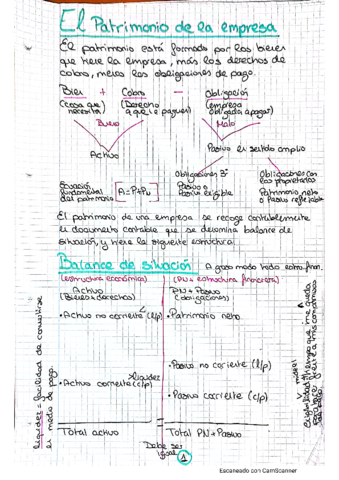 El Patrimonio de la empresa
El patrimonio está formado por los bienes
que tiene la empresa, más los derechos de
cobro, menos las obligaciones de pago.
Bien + Cobro - Obligación
(cosa que necesita) (Derecho a que le paguen) (empresa obligada a pagar)
Bueno Malo
Activo Pasivo en sentido amplio
Obligaciones 3º Obligaciones con los propietarios
Ecuación fundamental del patrimonio
A = P + PN
Pasivo o Pasivo exigible Patrimonio neto o Pasivo no exigible
El patrimonio de una empresa se recoge contablemente
el documento contable que se denomina balance de
situación, y tiene la siguiente estructura
Balance de situación A groso modo
(estructura económica) (PN + estructura financiera)
Activo PN + Pasivo
(Bienes + derechos) (obligaciones)
· Activo no corriente (l/p) · Patrimonio neto
· Pasivo no corriente (l/p)
>liquidez
· Activo corriente (c/p)
· Pasivo corriente (c/p)
Total activo Total PN + Pasivo
Debe ser igual
1
liquidez = facilidad de convertirse
en medio de pago
Escaneado con CamScanner